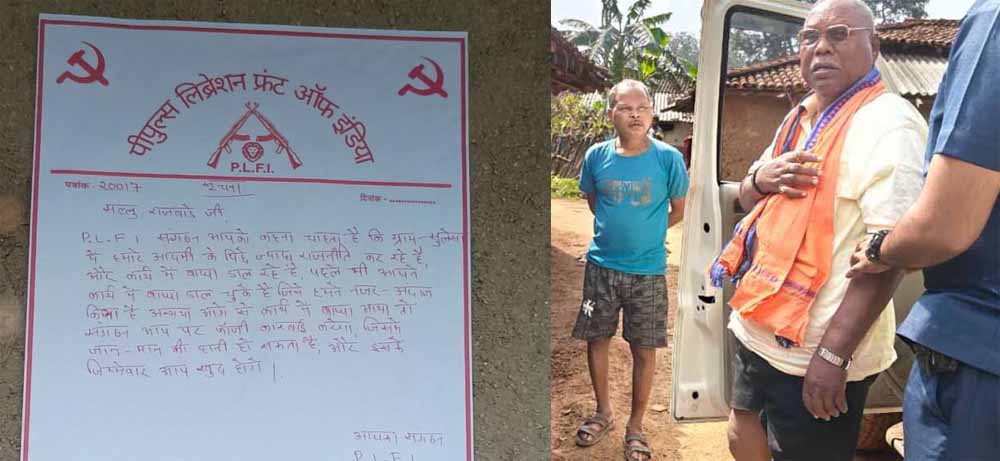 पीपुल्स लिब्रेशन फ्रंट ऑफ इंडिया
P.L.F.I.
पत्रांक- 20017
दिनांक - ................
राजवाडे जी,
P.L.F.I संगठन आपको कहना चाहता है कि ग्राम-
में हमारे आदमी के पिछे, ज्यादा राजनीति कर रहे है,
और कार्य में बाधा डाल रहे है, पहले भी आपने
कार्य में बाधा डाल चुके है जिसे हमने नजर-अंदाज
किया है अन्यथा आगे से कार्य में बाधा तो
संगठन आप पर कारवाई करेगा, जिसमें
जान-माल की हानी हो सकता है, और इसके
जिम्मेवार आप खुद होगें।
आपका संगठन
P.L.F.I